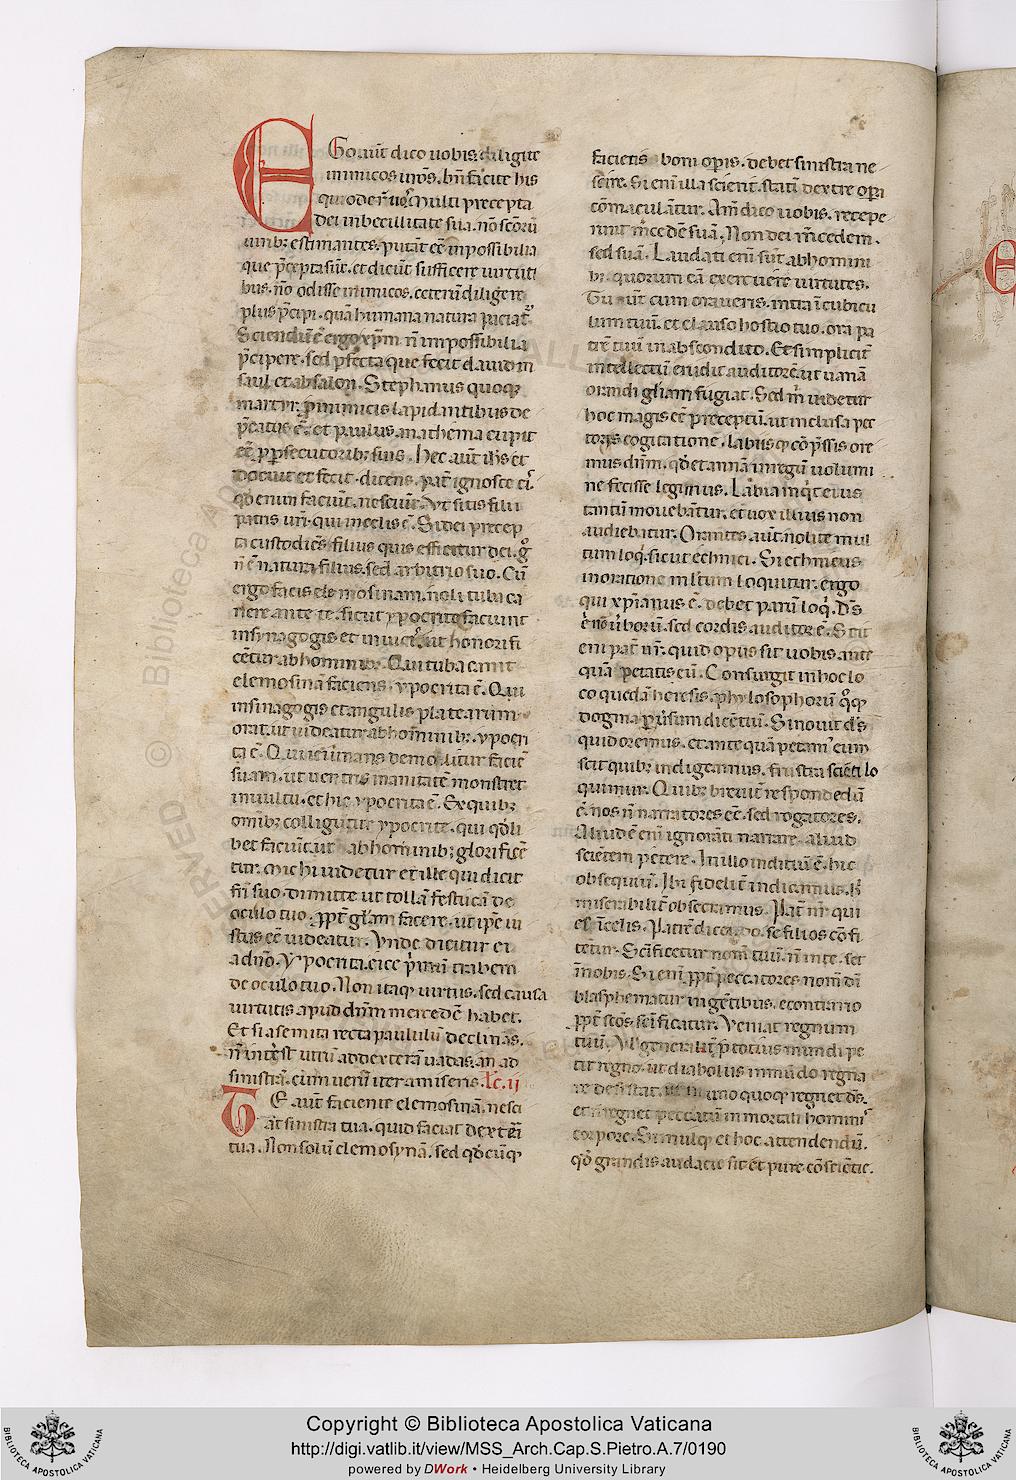 EGo aut̄ dico uobis. diligite
inimicos ur̄os. bn̄ facite his
qui oder̄t uos. Multi precepta
dei inbecillitate sua. nō scōrū
uirib; estimantes. putāt eē inpossibilia
que p̄cepta sūt. et dicūt sufficere uirtuti
bus. nō odisse inimicos. ceterū diligere
plus p̄cipi. quā humana natura paciat᷑.
Sciendū ē ergo xp̄m nō inpossibilia
p̄cipere. sed p̄fecta que fecit dauid in
saul et absalon. Stephanus quoq;
martyr. p̄ inimicis lapidantibus de
p̄catus ē. et paulus anathema cupit
eē. p̄ p̄secutorib; suis. Hec aut̄ ih̄s et
docuit et fecit. dicens. pat̄ ignosce ei.
qd̄ enim faciūt. nesciūt. Vt sitis filii
patris ur̄i. qui in celis ē. Si dei precep
ta custodiēs. filius quis efficitur dei. g̊
nō ē natura filius. sed arbitrio suo. Cū
ergo facis elemosinam. noli tuba ca
nere ante te. sicut ypocrite faciunt
in synagogis et in uicis. ut honorifi
cētur ab hominib;. Qui tuba canit
elemosinā faciens. ypocrita ē. Qui
in sinagogis et angulis platearum
orat. ut uideatur ab hominib;. ypocri
ta ē. Qui ieiunans demolitur faciē
suam. ut uentris inanitatē monstret
in uultu. et hic ypocrita ē. Ex quib;
omib; colligūtur ypocrite. qui qd̄li
bet faciūt. ut ab hominib; glorificē
tur. Michi uidetur et ille qui dicit
fr̄i suo. dimitte ut tollā festucā de
oculo tuo. ꝓpt̄ gl̄am facere. ut ip̄e iu
stus eē uideatur. Vnde dicitur ei
a dn̄o. Ypocrita. eice p̄mū trabem
de oculo tuo. Non itaq; uirtus. sed causa
uirtutis apud dm̄ mercedē habet.
Et si a semita recta paululū declinas.
nō int̄est utrū ad dexterā uadas. an ad
sinistrā. cum uerū iter amiseris. Lc. ii
TE aut̄ faciente elemosinā. nesci
at sinistra tua. quid faciat dextera
tua. Non solū elemosynā. sed qd̄cūq;
facietis boni op̄is. debet sinistra ne
scire. Si enī illa scierit. statī dextre op̄a
cōmaculātur. Am̄ dico uobis. recepe
runt m̄cedē suā. Non dei m̄cedem.
sed suā. Laudati enī sūt ab homini
b;. quorum cā exercuere uirtutes.
Tu aut̄ cum oraueris. intra ī cubicu
lum tuū. et clauso hostio tuo. ora pa
trē tuū in abscondito. Et simplicit̄
intellectū erudit auditorē. ut uanā
orandi gl̄am fugiat. Sed m̄ uidetur
hoc magis eē preceptū. ut inclusa pec
toris cogitatione. labiisq; cōp̄ssis ore
mus dn̄m. qd̄ et annā in regū uolumi
ne fecisse legimus. Labia inq̄t eius
tantū mouebātur. et uox illius non
audiebatur. Orantes aut̄. nolite mul
tum loq̄. sicut ethnici. Si ethnicus
in oratione multum loquitur. ergo
qui xp̄ianus ē. debet parū loq̄. Ds̄
ē. nō ūborū. sed cordis auditor ē. Scit
enī pat̄ nr̄. quid opus sit uobis. ante
quā petatis eū. Consurgit in hoc lo
co quedā heresis. phylosophorū q̊q;
dogma p̄uersum dicētiū. Si nouit ds̄
quid oremus. et ante quā petam᷒ eum
scit quib; indigeamus. frustra sciēti lo
quimur. Quib; breuit̄ respondēdū
ē. nos nō narratores eē. sed rogatores.
Aliud ē enī ignorāti narrare. aliud
sciētem petere. In illo indiciū ē. hic
obsequiū. Ibi fidelit̄ indicamus. h̄
miserabilit̄ obsecramus. Pat̄ nr̄ qui
es ī celis. Patrē dicendo. se filios cōfi
tētur. Scīficetur nom̄ tuū. nō in te. set
in nobis. Si enī ꝓpt̄ peccatores nom̄ dī
blasphematur in gētibus. econtrario
ꝓpt̄ scōs scīficatur. Veniat regnum
tuū. Vl̄ generalit̄ p̄ totius mundi pe
tit regno. ut diabolus in mūdo regna
re desistat. uel in unoquoq; regnet ds̄.
et nō regnet peccatū in mortali hominū
corpore. Simulq; et hoc attendendū.
qd̄ grandis audacie sit et pure cōsciētie.
Copyright © Biblioteca Apostolica Vaticana
http://digi.vatlib.it/view/MSS_Arch.Cap.S.Pietro.A.7/0190
powered by DWork • Heidelberg University Library
BIBLIOTECA APOSTOLICA VATICANA
BIBLIOTECA APOSTOLICA VATICANA